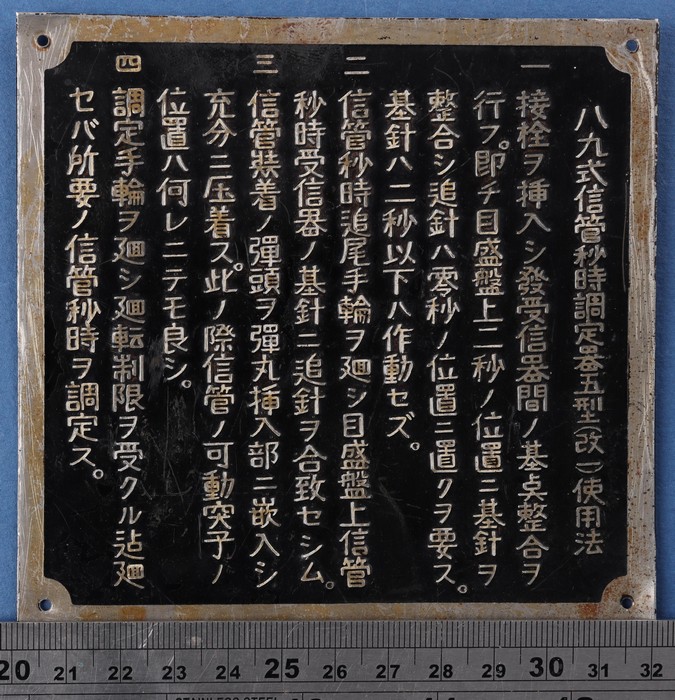 八九式信管秒時調定器五型(改一)使用法
一 接栓ヲ挿入シ發受信器間ノ基点整合ヲ
行フ。即チ目盛盤上二秒ノ位置ニ基針ヲ
整合シ追針ハ零秒ノ位置ニ置クヲ要ス。
基針ハ二秒以下ハ作動セズ。
二 信管秒時追尾手輪ヲ廻シ目盛盤上信管
秒時受信器ノ基針ニ追針ヲ合致セシム。
三 信管裝着ノ彈頭ヲ彈丸挿入部ニ嵌入シ
充分ニ圧着ス。此ノ際信管ノ可動突子ノ
位置ハ何レニテモ良シ。
四 調定手輪ヲ廻シ廻転制限ヲ受クル迠廻
セバ所要ノ信管秒時ヲ調定ス。
20 21 22 23 24 25 26 27 28 29 30 31 32